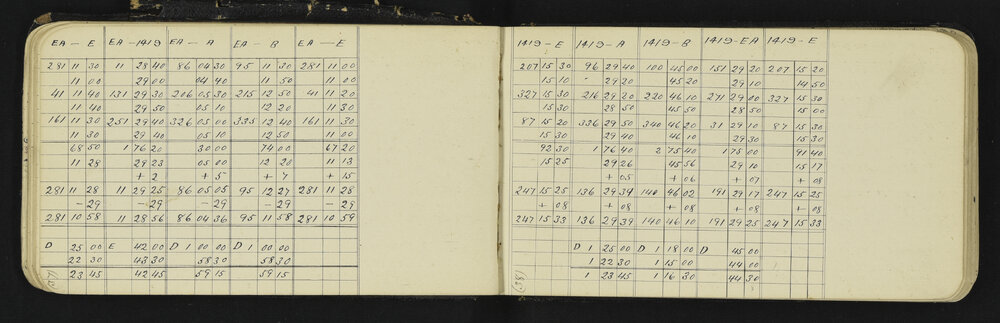 EA — E EA — 1419 EA — A EA — B EA — E
281 11 30 11 28 40 86 04 30 95 11 30 281 11 00
11 00 29 00 04 40 11 50 11 00
41 11 40 131 29 30 206 05 30 215 12 50 41 11 20
11 40 29 50 05 10 12 20 11 30
161 11 30 251 29 40 326 05 00 335 12 40 161 11 30
11 30 29 40 05 10 12 50 11 00
68 50 1 76 20 30 00 74 00 67 20
11 28 29 23 05 00 12 20 11 13
+ 2 + 5 + 7 + 15
281 11 28 11 29 25 86 05 05 95 12 27 281 11 28
— 29 — 29 — 29 — 29 — 29
281 10 58 11 28 56 86 04 36 95 11 58 281 10 59
D 25 00 E 42 00 D 1 00 00 D 1 00 00
22 30 43 30 58 30 58 30
23 45 42 45 59 15 59 15
1419 — E 1419 — A 1419 — B 1419 — EA 1419 — E
207 15 30 96 29 40 100 45 00 151 29 20 207 15 20
15 10 - 29 20 45 20 29 10 14 50
327 15 30 216 29 20 220 46 10 271 29 00 327 15 30
15 30 28 50 45 50 28 50 15 00
87 15 20 336 29 50 340 46 20 31 29 10 87 15 30
15 30 29 40 46 10 29 30 15 30
92 30 1 76 40 2 75 40 1 75 00 91 40
15 25 29 26 45 56 29 10 15 17
+ 05 + 06 + 07 + 08
247 15 25 136 29 31 140 46 02 191 29 17 247 15 25
+ 08 + 08 + 08 + 08 + 08
247 15 33 136 29 39 140 46 10 191 29 25 247 15 33
D 1 25 00 D 1 18 00 D 45 00
1 22 30 1 15 00 44 00
1 23 45 1 16 30 44 30
(38)